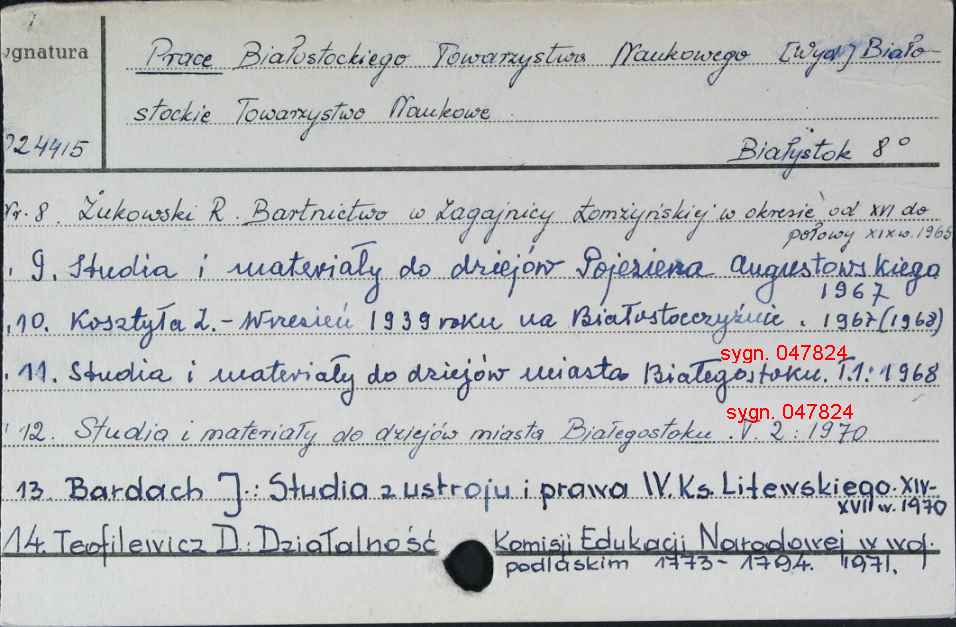 ygnatura
Prace Białostockiego Towarzystwa Naukowego [Wyd] Biało-
stockie Towarzystwo Naukowe
24415
Białystok 8°
Nr. 8. Żukowski R. Bartnictwo w Zagajnicy Łomżyńskiej w okresie od XVI do
połowy XIX w. 1965
9. Studia i materiały do dziejów Pojezierza Augustowskiego
1967
10. Kosztyła Z. - Wrzesień 1939 roku na Białostocczyźnie. 1967 (1968)
sygn. 047824
11. Studia i materiały do dziejów miasta Białegostoku. T.1: 1968
sygn. 047824
12. Studia i materiały do dziejów miasta Białegostoku. V. 2: 1970
13. Bardach J.: Studia z ustroju i prawa W. Ks. Litewskiego. XIV-
XVII w. 1970
14. Teofilewicz D.: Działalność Komisji Edukacji Narodowej w woj.
podlaskim 1773-1794. 1971.